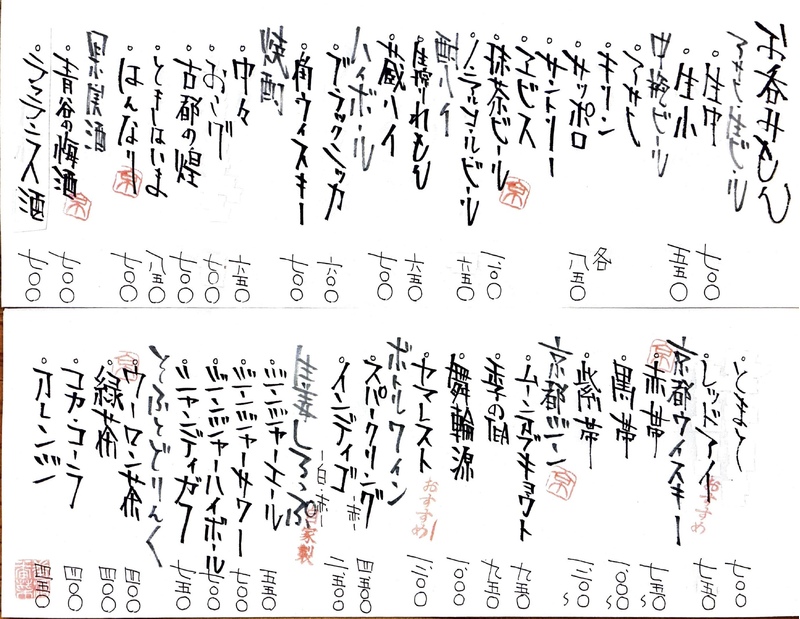 お呑みもん
アサヒ生ビール
生中 七〇〇
生小 五五〇
中瓶ビール
アサヒ
キリン 各
サッポロ 八五〇
サントリー
ヱビス
抹茶ビール 京 一、一〇〇
ノンアルコールビール 六五〇
酎ハイ
生搾りれもん 六五〇
蔵ハイ 七〇〇
ハイボール
ブラックニッカ 六〇〇
角ウィスキー 七〇〇
焼酎
中々 六五〇
おこげ 七〇〇
古都の煌 七〇〇
ときはいま 八五〇
はんなり 京 七〇〇
果実酒
青谷の梅酒 京 七〇〇
ラフランス酒 七〇〇
とまと 七〇〇
レッドアイ おすすめ 七五〇
京都ウィスキー 京
赤帯 七五〇〜
黒帯 一、〇〇〇〜
紫帯 一、二〇〇〜
京都ジン 京
ムーンオブキョウト 九五〇
季のTEA 九五〇
舞輪源 一、〇〇〇
ヤマトスト おすすめ 一、二〇〇
ボトルワイン
スパークリング 四、五〇〇
インディゴ -白・赤- 二、五〇〇
生姜しろっぷ 自家製
ジンジャーエール 五五〇
ジンジャーサワー 七〇〇
ジンジャーハイボール 七〇〇
シャンディガフ 七五〇
そふとどりんく
ウーロン茶 四〇〇
緑茶 京 四〇〇
コカ・コーラ 四〇〇
オレンジ 四五〇